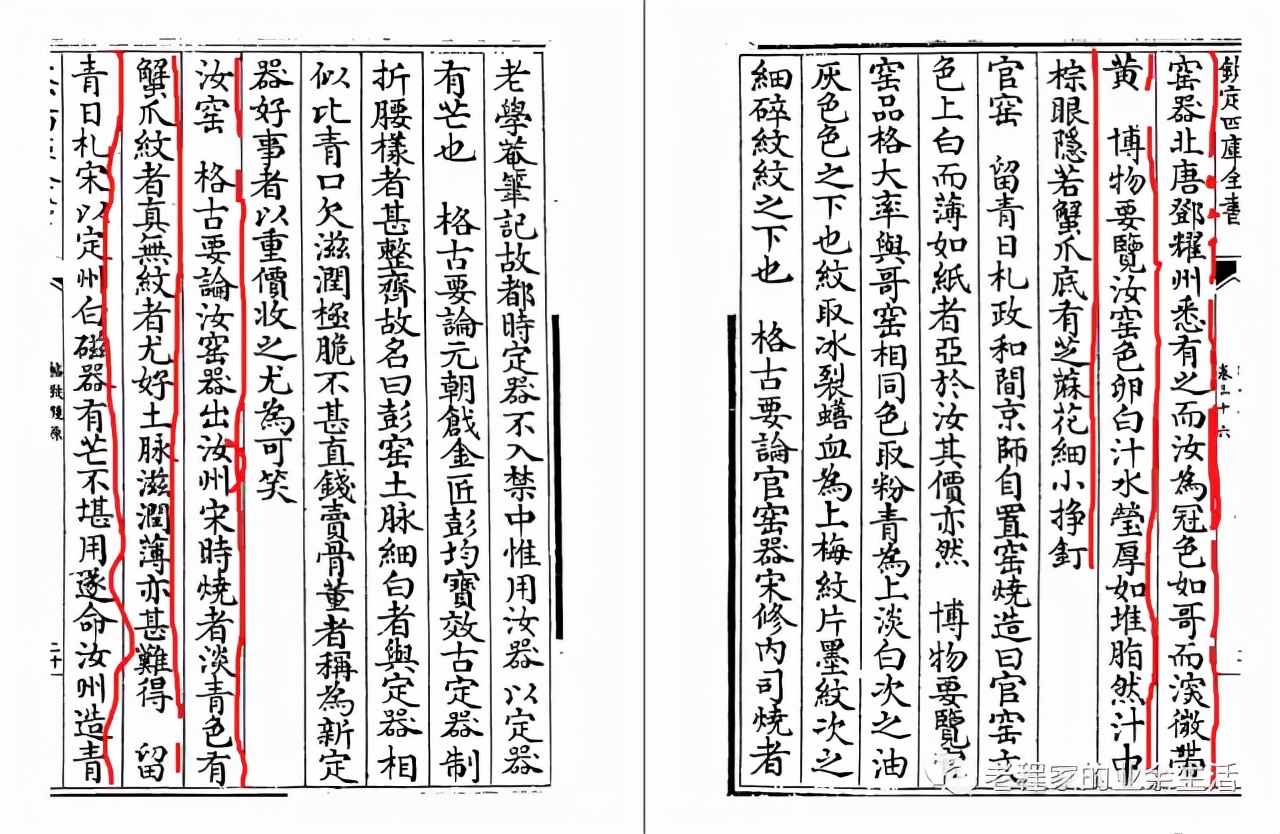 老學菴筆記故都時定器不入禁中惟用汝器以定器
有芒也　格古要論元朝戧金匠彭均寶效古定器制
折腰樣者甚整齊故名曰彭窑土脉細白者與定器相
似比青口欠滋潤極脆不甚直錢賣骨董者稱為新定
器好事者以重價收之尤為可笑
汝窑　格古要論汝窑器出汝州宋時燒者淡青色有
蟹爪紋者真無紋者尤好土脉滋潤薄亦甚難得　留
青日札宋以定州白磁器有芒不堪用遂命汝州造青
格致鏡原
欽定四庫全書
卷三十六
窑器北唐鄧耀州悉有之而汝為冠色如哥而深微帶
黄　博物要覽汝窑色卵白汁水瑩厚如堆脂然汁中
棕眼隱若蟹爪底有芝蔴花細小挣釘
官窑　留青日札政和間京師自置窑燒造曰官窑土
色上白而薄如紙者亞於汝其價亦然　博物要覽官
窑品格大率與哥窑相同色取粉青為上淡白次之油
灰色色之下也紋取冰裂蟮血為上梅紋片墨紋次之
細碎紋紋之下也　格古要論官窑器宋修内司燒者
老程家的业余生活